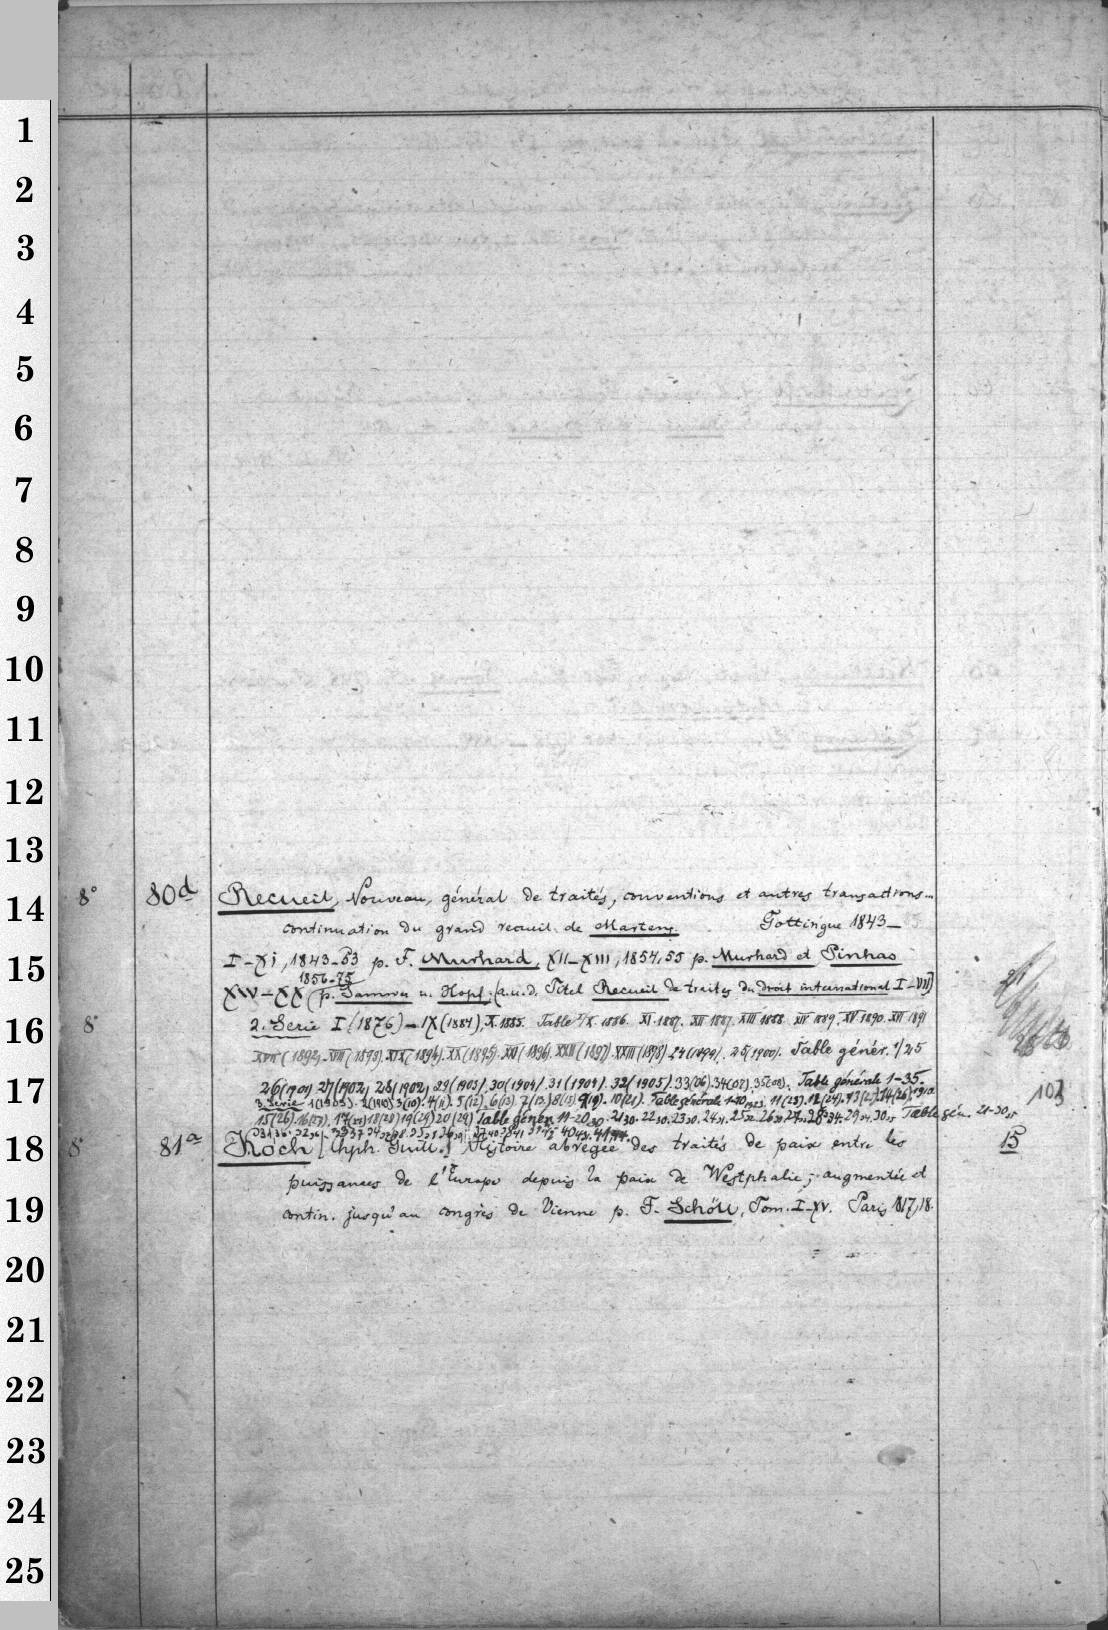 1
2
3
4
5
6
7
8
9
10
11
12
13
14
15
16
17
18
19
20
21
22
23
24
25
8° 80d Recueil, Nouveau, général de traités, conventions et autres transactions...
continuation du grand recueil de Martens. Gottingue 1843-
I-XI, 1843-53 p. F. Murhard, XII-XIII, 1854,55 p. Murhard et Pinhas
1856-75
XIV-XX (p. Samwer u. Hopf; (a.u.d. Titel Recueil de traités du droit international I-VII)
8° 2. Serie I (1876)-IX (1884), X. 1885. Table I/X. 1886. XI. 1887. XII 1887. XIII 1888. XIV 1889. XV. 1890. XVI 1891
XVII (1892), XVIII (1893), XIX (1894). XX (1895). XXI (1896). XXII (1897). XXIII (1898). 24 (1899). 25 (1900). Table génér. 1/25
26 (1901) 27 (1902), 28 (1902), 29 (1903). 30 (1904). 31 (1904). 32 (1905). 33 (06). 34 (07). 35 (08). Table générale 1-35.
3. Série 5 (12). 6 (13). 7 (13). 8 (15) 9 (19). 10 (21). Table générale 1-10 11 (23). 12 (24). 14 (26) 103
15 (26). 18 (28) 19 (29) 20 (29) Table génér. 11-20 21 30. 22 30. 23 30. Table gén. 21-30
8° 81a Koch [Chph. Guill.] Histoire abrégée des traités de paix entre les 15
puissances de l'Europe depuis la paix de Westphalie; augmentée et
contin. jusqu'au congrès de Vienne p. F. Schöll, Tom. I-XV. Paris 1817,18.